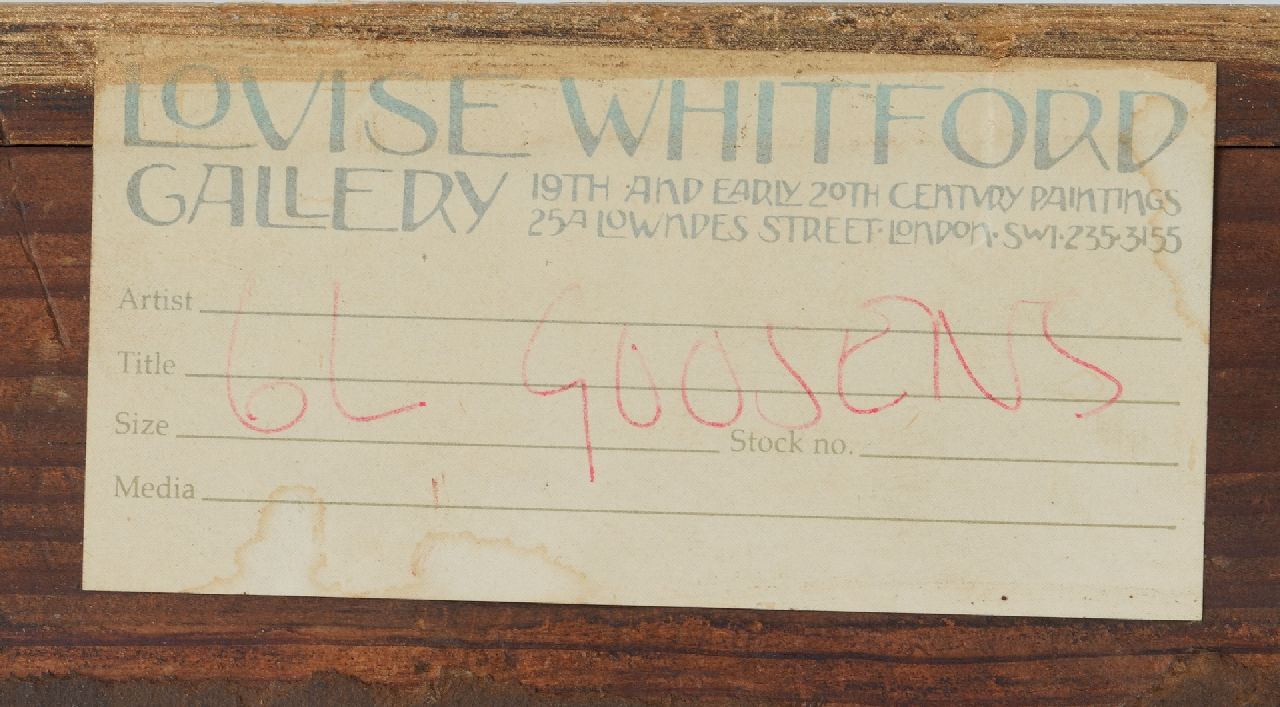 LOVISE WHITFORD
GALLERY 19TH · AND EARLY 20TH CENTVRY PAINTINGS
25A LOWNDES STREET · LONDON · SW1 · 235 · 3155
Artist
Title
6L GOOSENS
Size Stock no.
Media